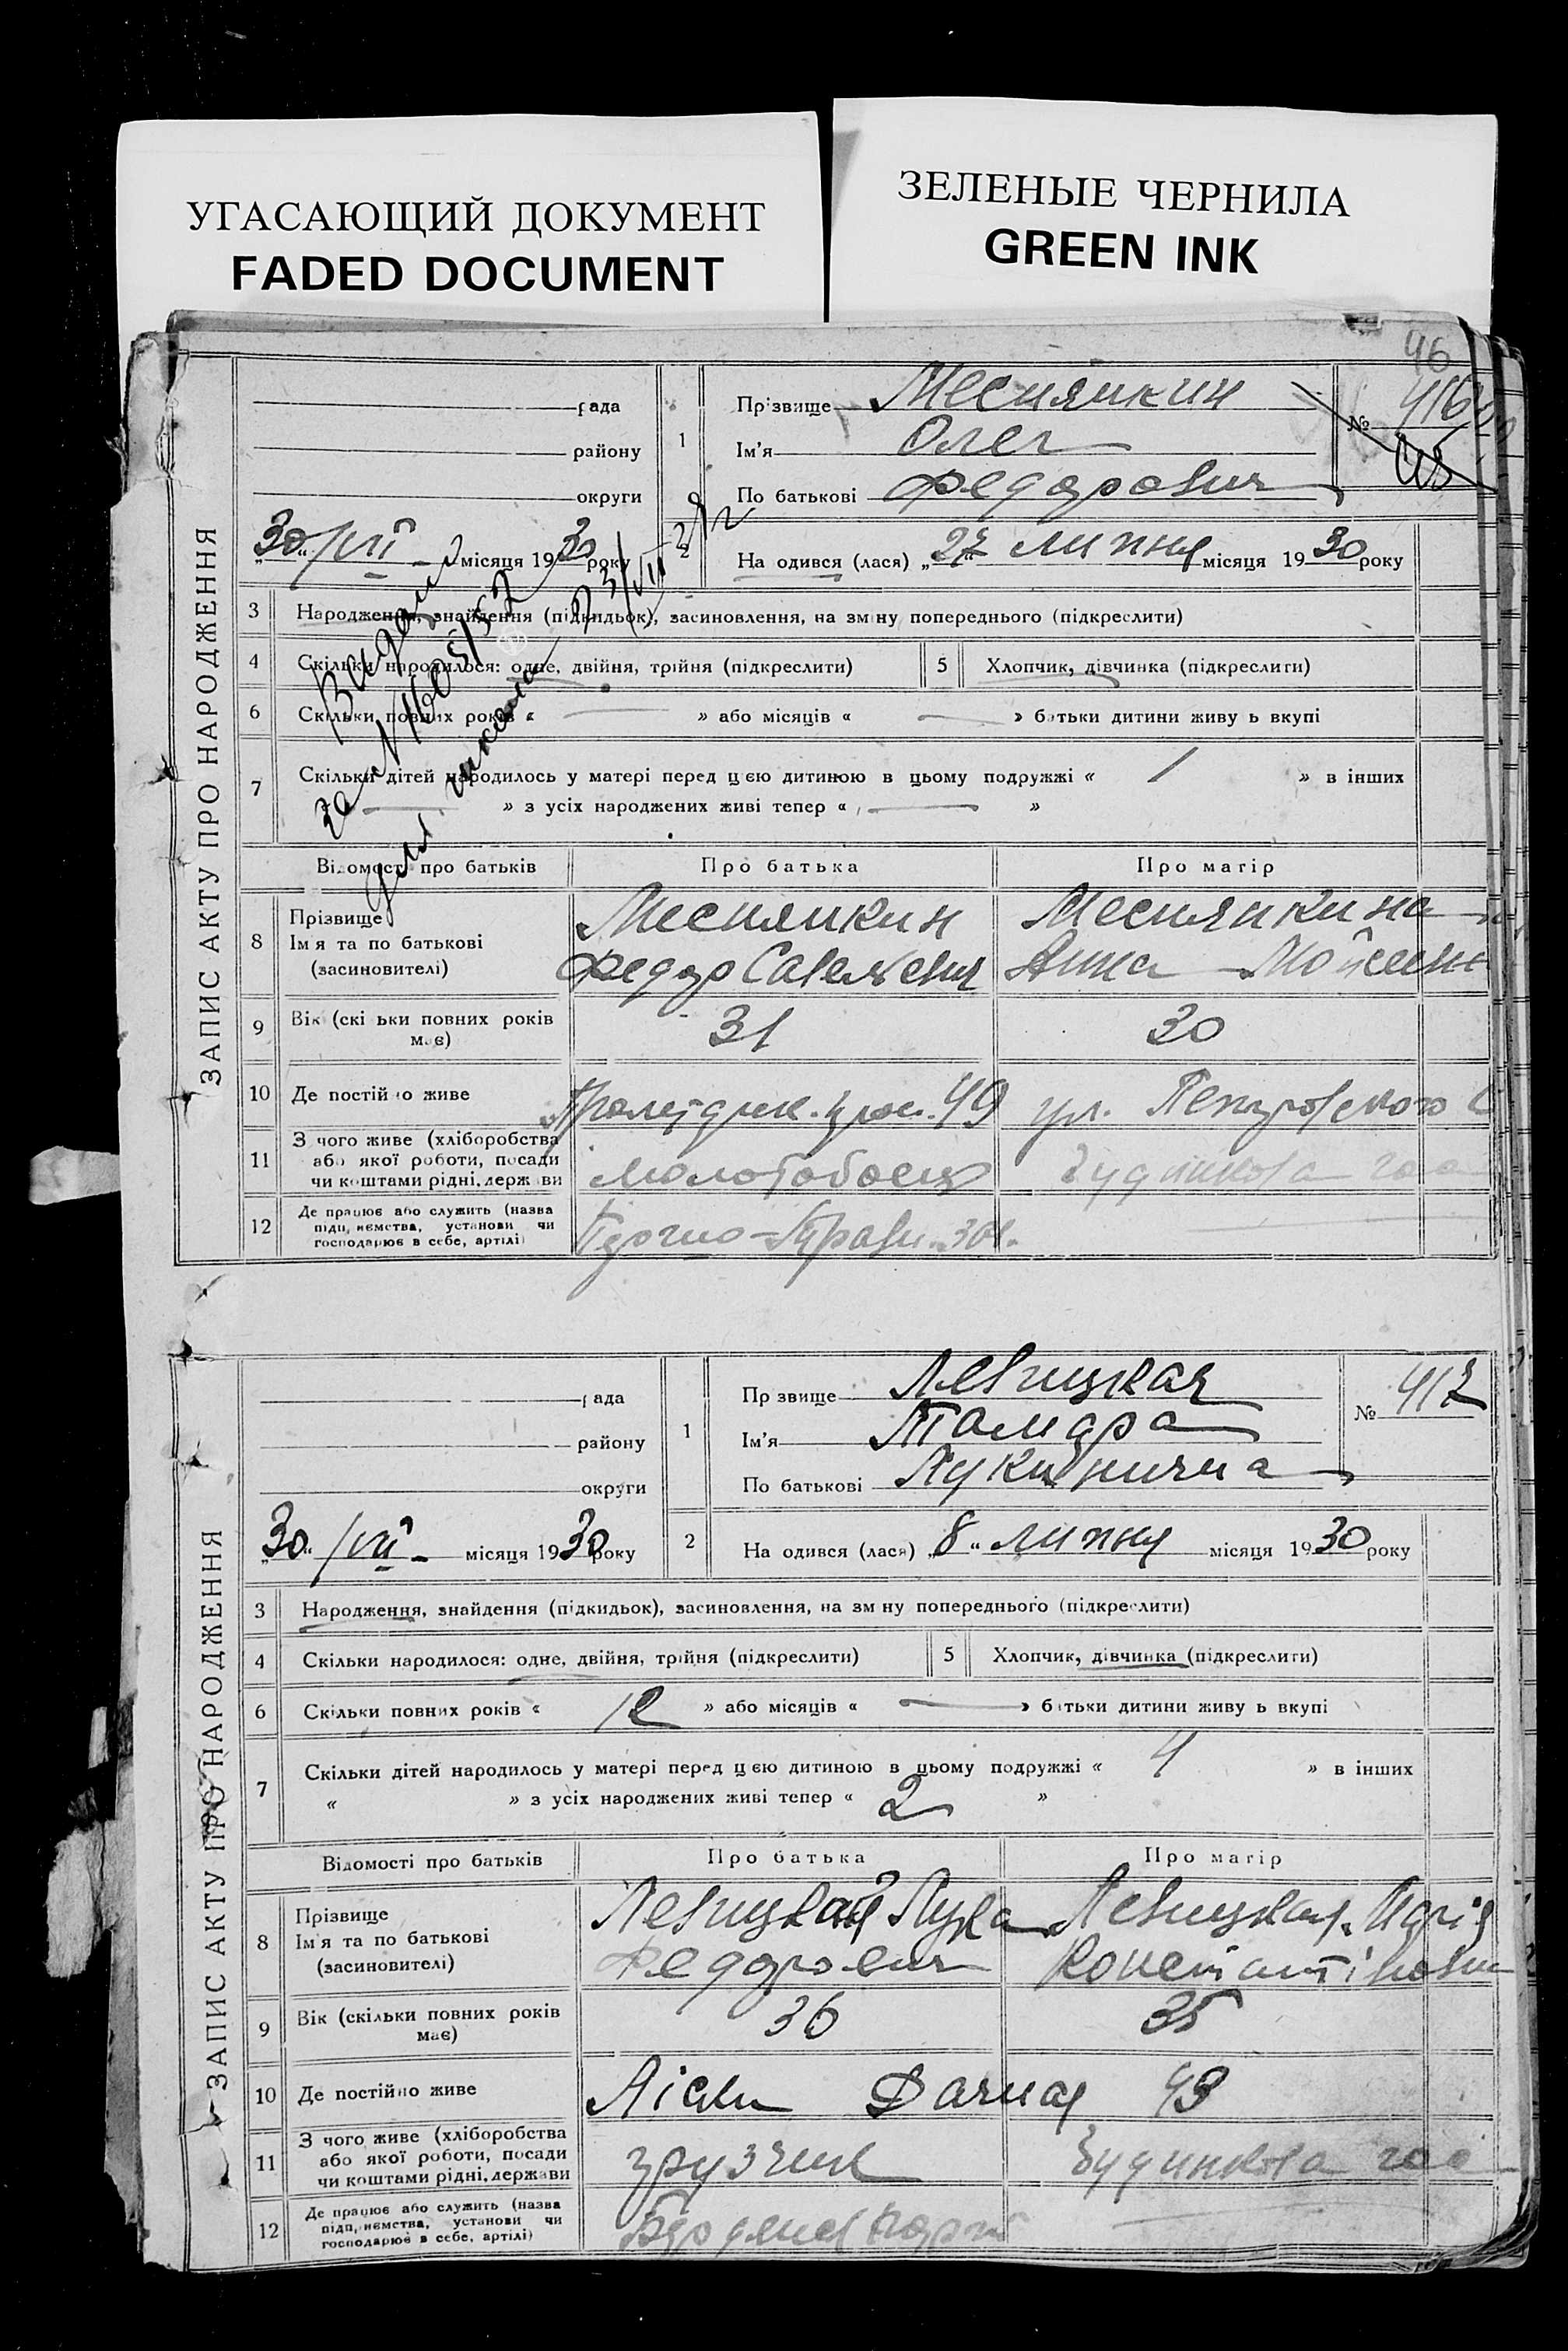 УГАСАЮЩИЙ ДОКУМЕНТ
FADED DOCUMENT
ЗЕЛЕНЫЕ ЧЕРНИЛА
GREEN INK
46
ЗАПИС АКТУ ПРО НАРОДЖЕННЯ
рада
району
округи
30 /VII місяця 1930 року
1
Прізвище Меснянкин
Ім'я Олег
По батькові Федорович
№ 416
2
На одився (лася) „27“ липня місяця 1930 року
Видано
за N 1605/52
для школи
3 Народження, знайдення (підкидьок), засиновлення, на зм ну попереднього (підкреслити)
4 Скільки народилося: одне, двійня, трійня (підкреслити)
5 Хлопчик, дівчинка (підкреслити)
6 Скільки повних років « — » або місяців « — » батьки дитини живу ь вкупі
7 Скільки дітей народилось у матері перед цією дитиною в цьому подружжі « 1 » в інших
— » з усіх народжених живі тепер « — »
Відомості про батьків Про батька Про матір
8 Прізвище
Ім'я та по батькові
(засновителі)
Меснянкин
Федор Савельевич
Меснянкина
Анна
9 Вік (скі ьки повних років має)
31
30
10 Де постійно живе
49
ул.
11 З чого живе (хліборобства
або якої роботи, посади
чи коштами рідні, держави
молотобоец
12 Де працює або служить (назва
підп, иємства, установи чи
господарює в себе, артілі)
ЗАПИС АКТУ ПРО НАРОДЖЕННЯ
рада
району
округи
30 /VII - місяця 1930 року
1
Пр звище Левицкая
Ім'я Тамара
По батькові
№ 417
2
На одився (лася) „8“ липня місяця 1930 року
3 Народження, знайдення (підкидьок), засиновлення, на зм ну попереднього (підкреслити)
4 Скільки народилося: одне, двійня, трійня (підкреслити)
5 Хлопчик, дівчинка (підкреслити)
6 Скільки повних років « 12 » або місяців « — » батьки дитини живу ь вкупі
7 Скільки дітей народилось у матері перед цією дитиною в цьому подружжі « 4 » в інших
« » з усіх народжених живі тепер « 2 »
Відомості про батьків Про батька Про матір
8 Прізвище
Ім'я та по батькові
(засновителі)
Левицкий Лука
Федорович
Левицкая Марія
9 Вік (скільки повних років має)
36
35
10 Де постійно живе
Ліски Дачная 43
11 З чого живе (хліборобства
або якої роботи, посади
чи коштами рідні, держави
грузчик
12 Де працює або служить (назва
підп, иємства, установи чи
господарює в себе, артілі)